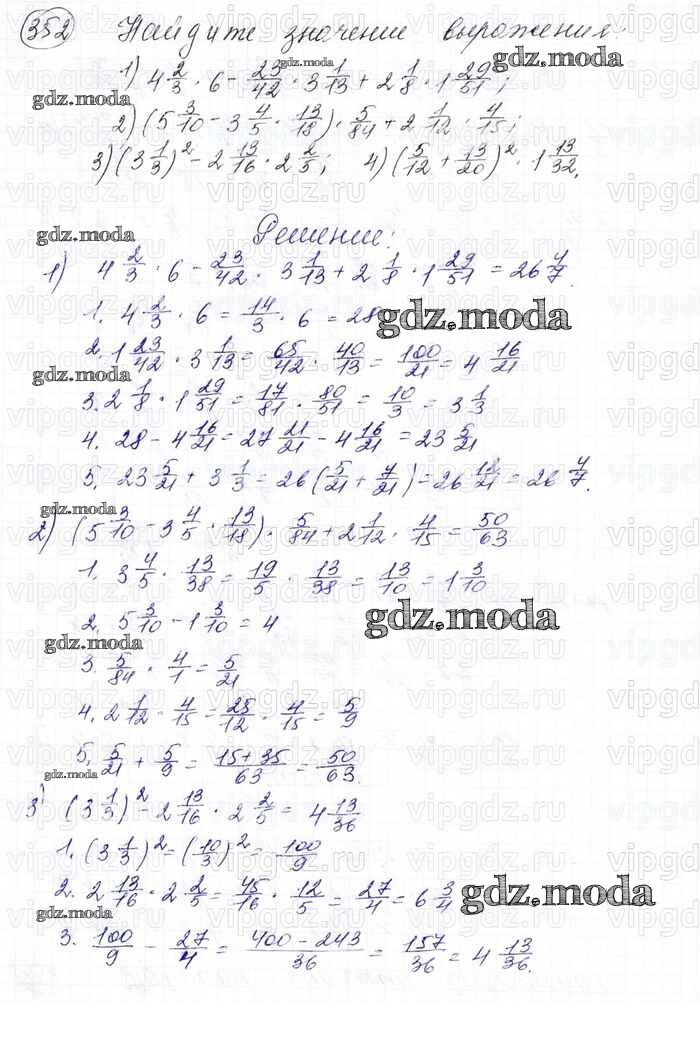 352 Найдите значение выражения:
1) 4 2/3 · 6 - 23/42 · 3 1/13 + 2 1/8 · 1 29/51;
gdz.moda
2) (5 3/10 - 3 4/5 · 13/18) · 5/84 + 2 1/12 · 4/15;
3) (3 1/3)² - 2 13/16 · 2 2/5; 4) (5/12 + 13/20)² · 1 13/32.
gdz.moda
Решение:
1) 4 2/3 · 6 - 23/42 · 3 1/13 + 2 1/8 · 1 29/51 = 26 4/7.
1. 4 2/3 · 6 = 14/3 · 6 = 28
gdz.moda
2. 1 23/42 · 3 1/13 = 65/42 · 40/13 = 100/21 = 4 16/21
gdz.moda
3. 2 1/8 · 1 29/51 = 17/81 · 80/51 = 10/3 = 3 1/3
4. 28 - 4 16/21 = 27 21/21 - 4 16/21 = 23 5/21
5. 23 5/21 + 3 1/3 = 26 (5/21 + 7/21) = 26 12/21 = 26 4/7.
gdz.moda
2) (5 3/10 - 3 4/5 · 13/18) · 5/84 + 2 1/12 · 4/15 = 50/63
1. 3 4/5 · 13/38 = 19/5 · 13/38 = 13/10 = 1 3/10
2. 5 3/10 - 1 3/10 = 4
gdz.moda
gdz.moda
3. 5/84 · 4/1 = 5/21
4. 2 1/12 · 4/15 = 25/12 · 4/15 = 5/9
5. 5/21 + 5/9 = 15+35/63 = 50/63.
gdz.moda
3) (3 1/3)² - 2 13/16 · 2 2/5 = 4 13/36
1. (3 1/3)² = (10/3)² = 100/9
2. 2 13/16 · 2 2/5 = 45/16 · 12/5 = 27/4 = 6 3/4
gdz.moda
gdz.moda
3. 100/9 - 27/4 = 400-243/36 = 157/36 = 4 13/36.